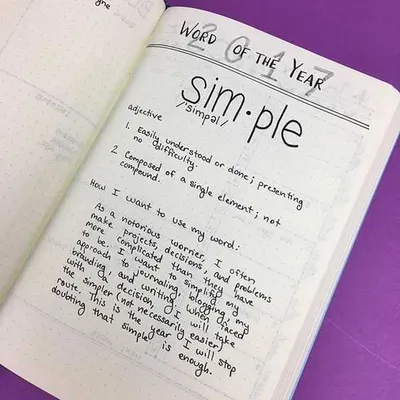 gne
2017
WORD OF THE YEAR
sim•ple
/'simpəl/
adjective
1. Easily understood or done; presenting
no difficulty.
2. Composed of a single element; not
compound.
How I want to use my word:
As a notorious worrier, I often
make projects, decisions, and problems
more complicated than they have
to be. I want to simplify my
approach to journaling, blogging, my
branding, and writing. When faced
with a decision, I will take
the simpler (not necessarily easier)
route. This is the year I will stop
doubting that simple is enough.